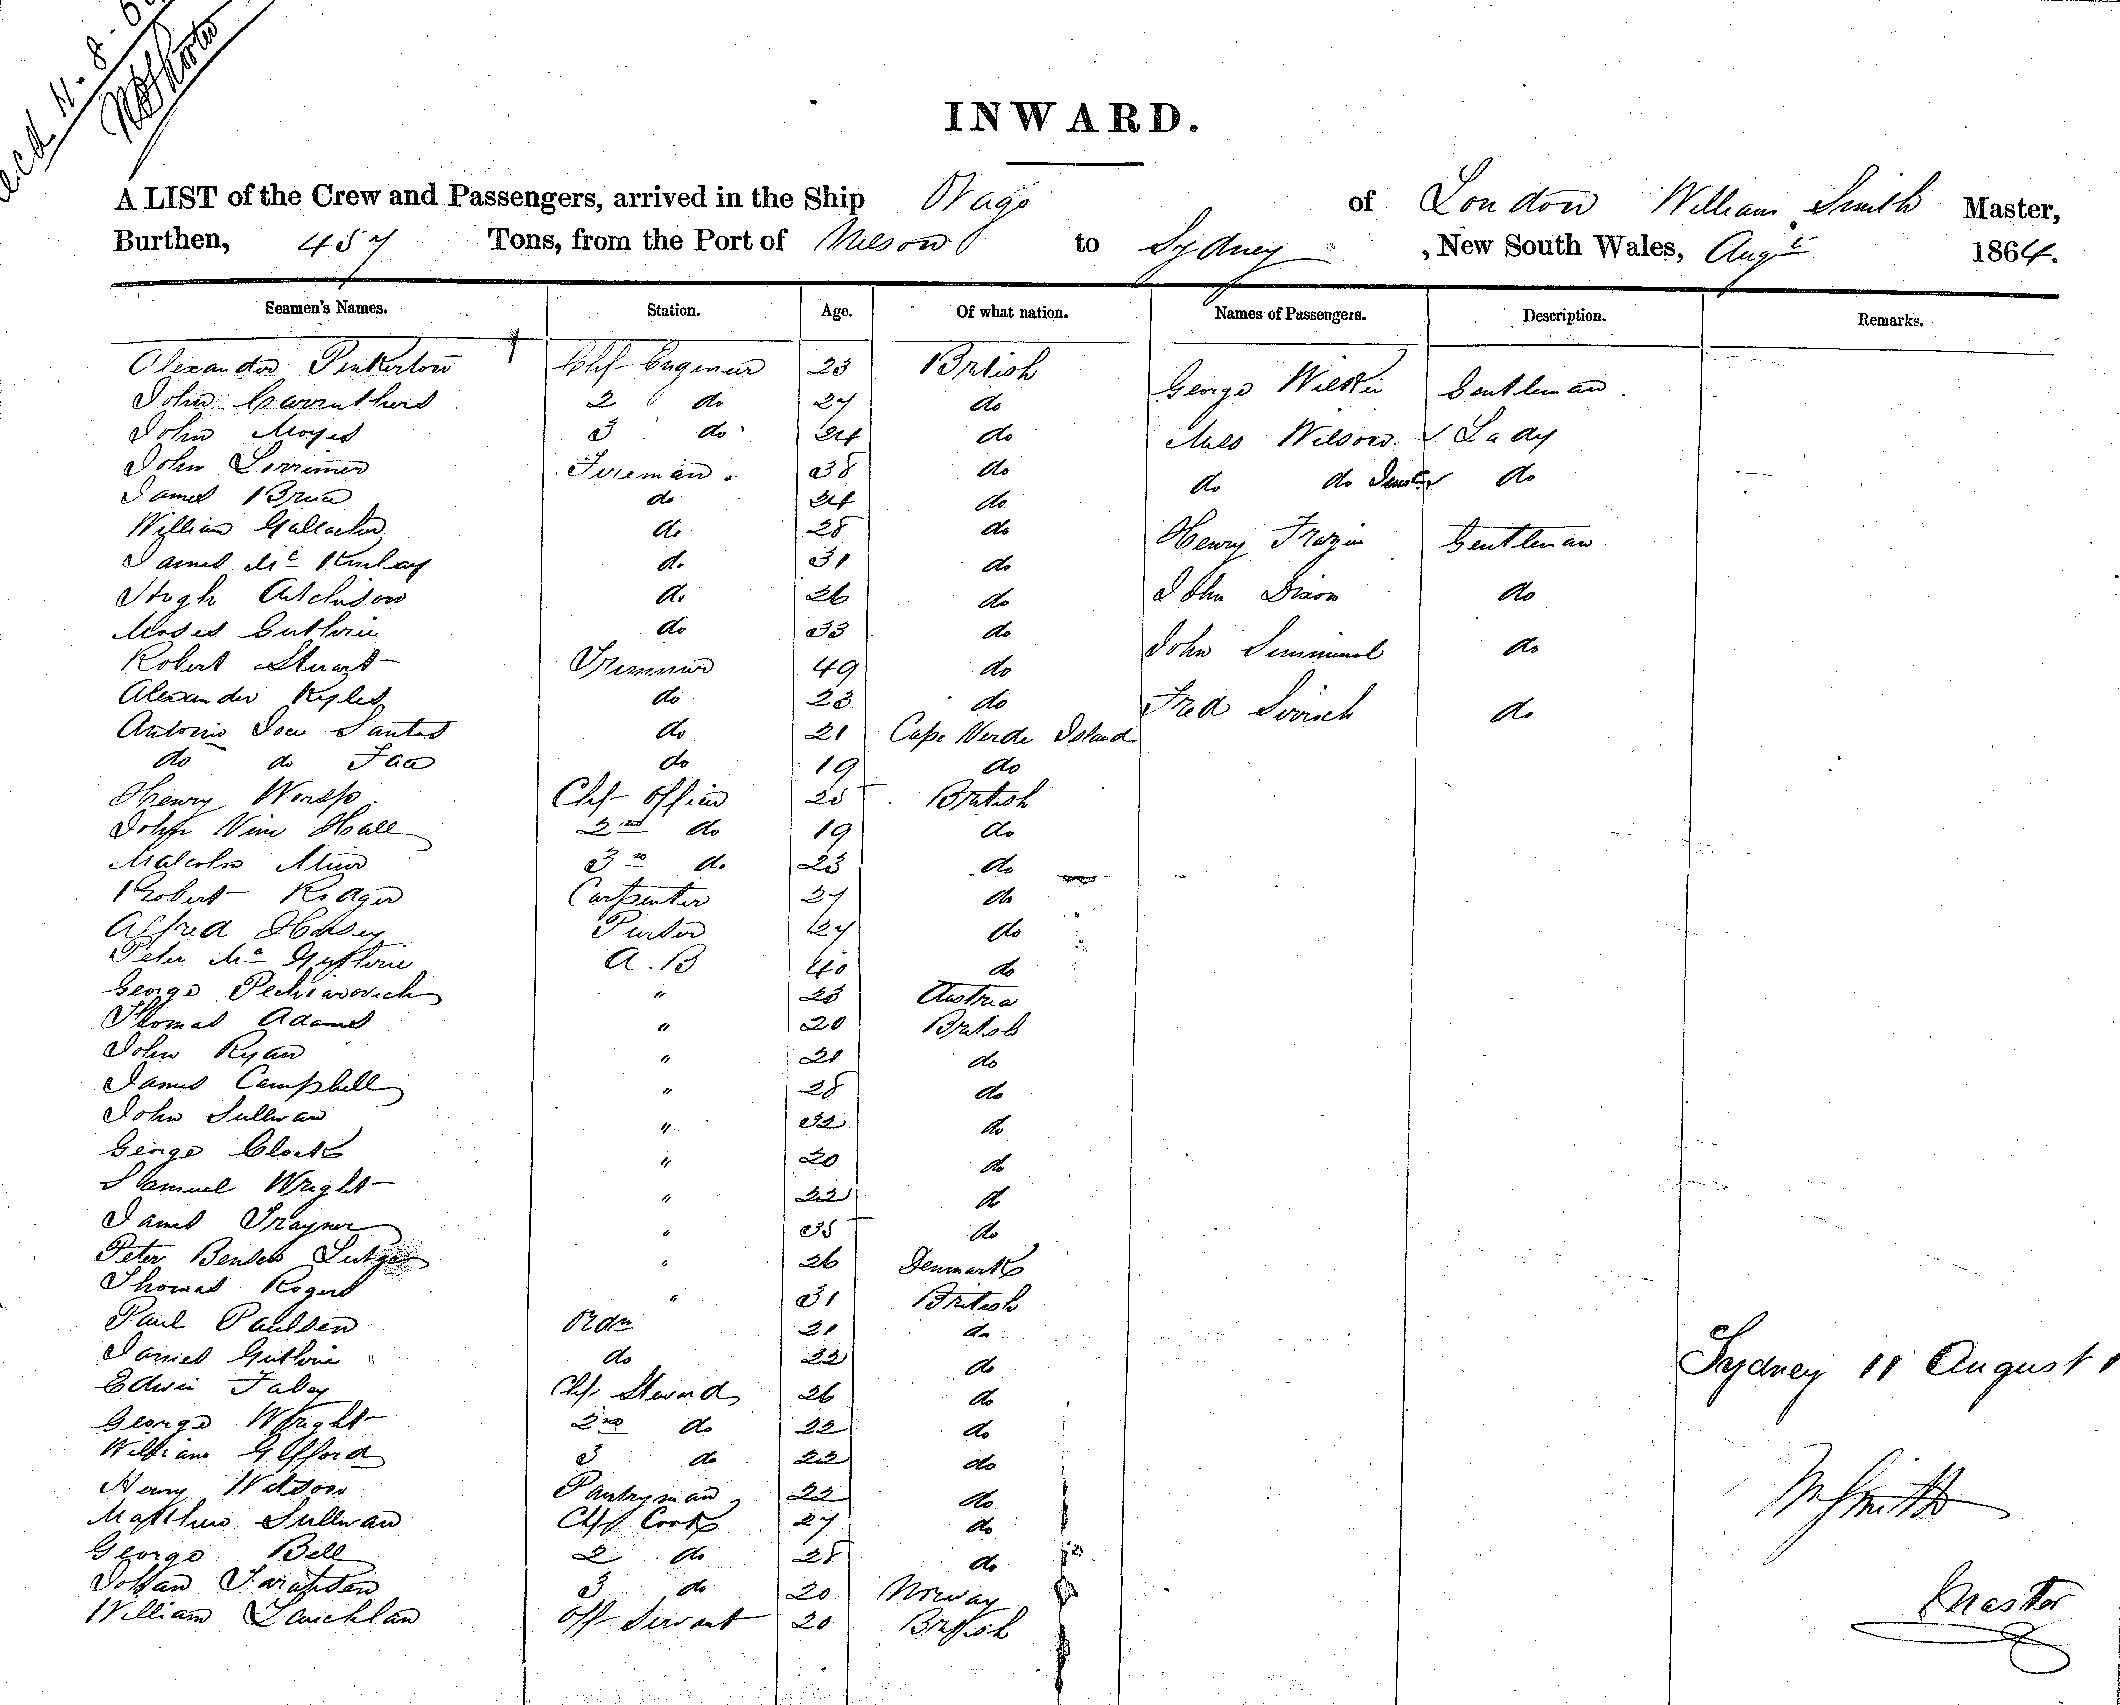 INWARD.
A LIST of the Crew and Passengers, arrived in the Ship Otago of London William Smith Master,
Burthen, 457 Tons, from the Port of Nelson to Sydney, New South Wales, Augt 1864.
Seamen's Names. Station. Age. Of what nation. Names of Passengers. Description. Remarks.
Alexander Pinkerton Chf Engineer 23 British George Wilkie Gentleman
John Carruthers 2 do 27 do
John Moyes 3 do 24 do Miss Wilson Lady
John Lorrimer Fireman 38 do do do do
James Bruce do 24 do
William Gallacher do 28 do Henry Frazer Gentleman
James Mc Kinlay do 31 do
Hugh Aitchison do 26 do John Dixon do
Moses Guthrie do 33 do
Robert Stuart Trimmer 49 do John do
Alexander Kyles do 23 do Fred do
Antonio Santos do 21 Cape Verde Island
do do do 19 do
Henry Worsp Chf Officer 25 British
John Vine Hall 2nd do 19 do
Malcolm Muir 3rd do 23 do
Robert Rodger Carpenter 27 do
Alfred Purser 27 do
Peter Mc A.B 40 do
George " 23 Austria
Thomas Adams " 20 British
John Ryan " 21 do
James Campbell " 28 do
John Sullivan " 32 do
George Clark " 20 do
Samuel Wright " 22 do
James Traynor " 35 do
Peter " 26 Denmark
Thomas Rogers " 31 British
Paul Paulsen Ordn 21 do
Daniel Guthrie do 22 do
Edwin Faley Chf Steward 26 do
George Wright 2nd do 22 do
William Gifford 3 do 22 do
Henry Watson Pantryman 22 do
Matthew Sullivan Chf Cook 27 do
George Bell 2 do 28 do
Johan 3 do 20 Norway
William Lauchlan Off Servant 20 British
Sydney 11 August
W Smith
Master